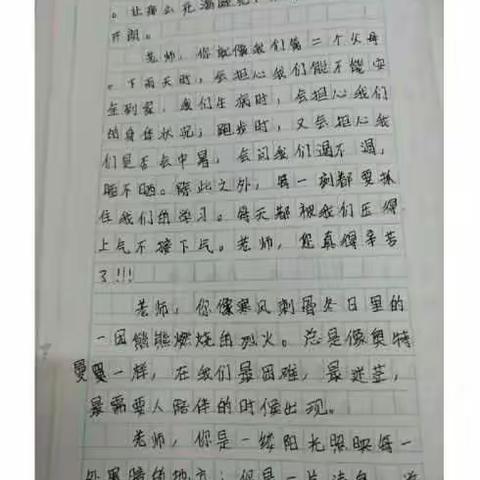 开朗。
老师，你就像我们第二个父母
。下雨天时，会担心我们能不能安
全到家，我们生病时，会担心我们
的身体状况；跑步时，又会担心我
们是否会中暑，会问我们渴不渴，
晒不晒。除此之外，每一刻都要抓
住我们的学习。每天都被我们压得
上气不接下气。老师，您真得辛苦
了!!!
老师，你像寒风刺骨冬日里的
一团熊熊燃烧的烈火。总是像奥特
曼一样，在我们最困难，最迷茫，
最需要人陪伴的时候出现。
老师，你是一缕阳光照映每一